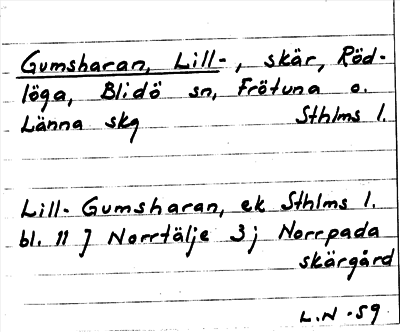 Gumsharan, Lill-, skär, Röd-
löga, Blidö sn, Frötuna o.
Länna skg Sthlms l.
Lill-Gumsharan, ek Sthlms l.
bl. 11 J Norrtälje 3j Norrpada
skärgård
L.N -59